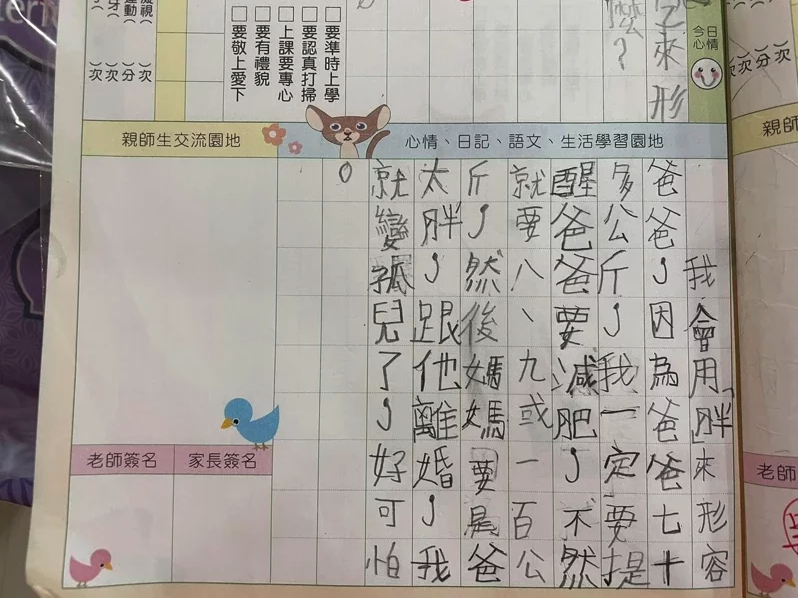 今日
心情
來形
麼？
□要準時上學
□要認真打掃
□上課要專心
□要有禮貌
□要敬上愛下
（ ）次
（ ）分
（ ）次
（ ）次
心情、日記、語文、生活學習園地
我會用「胖來形容
爸爸，因為爸爸七十
多公斤，我一定要提
醒爸爸要減肥，不然
就要八、九或一百公
斤，然後媽媽要是爸
太胖，跟他離婚，我
就變孤兒了，好可怕
。
親師生交流園地
家長簽名
老師簽名
親師
老師